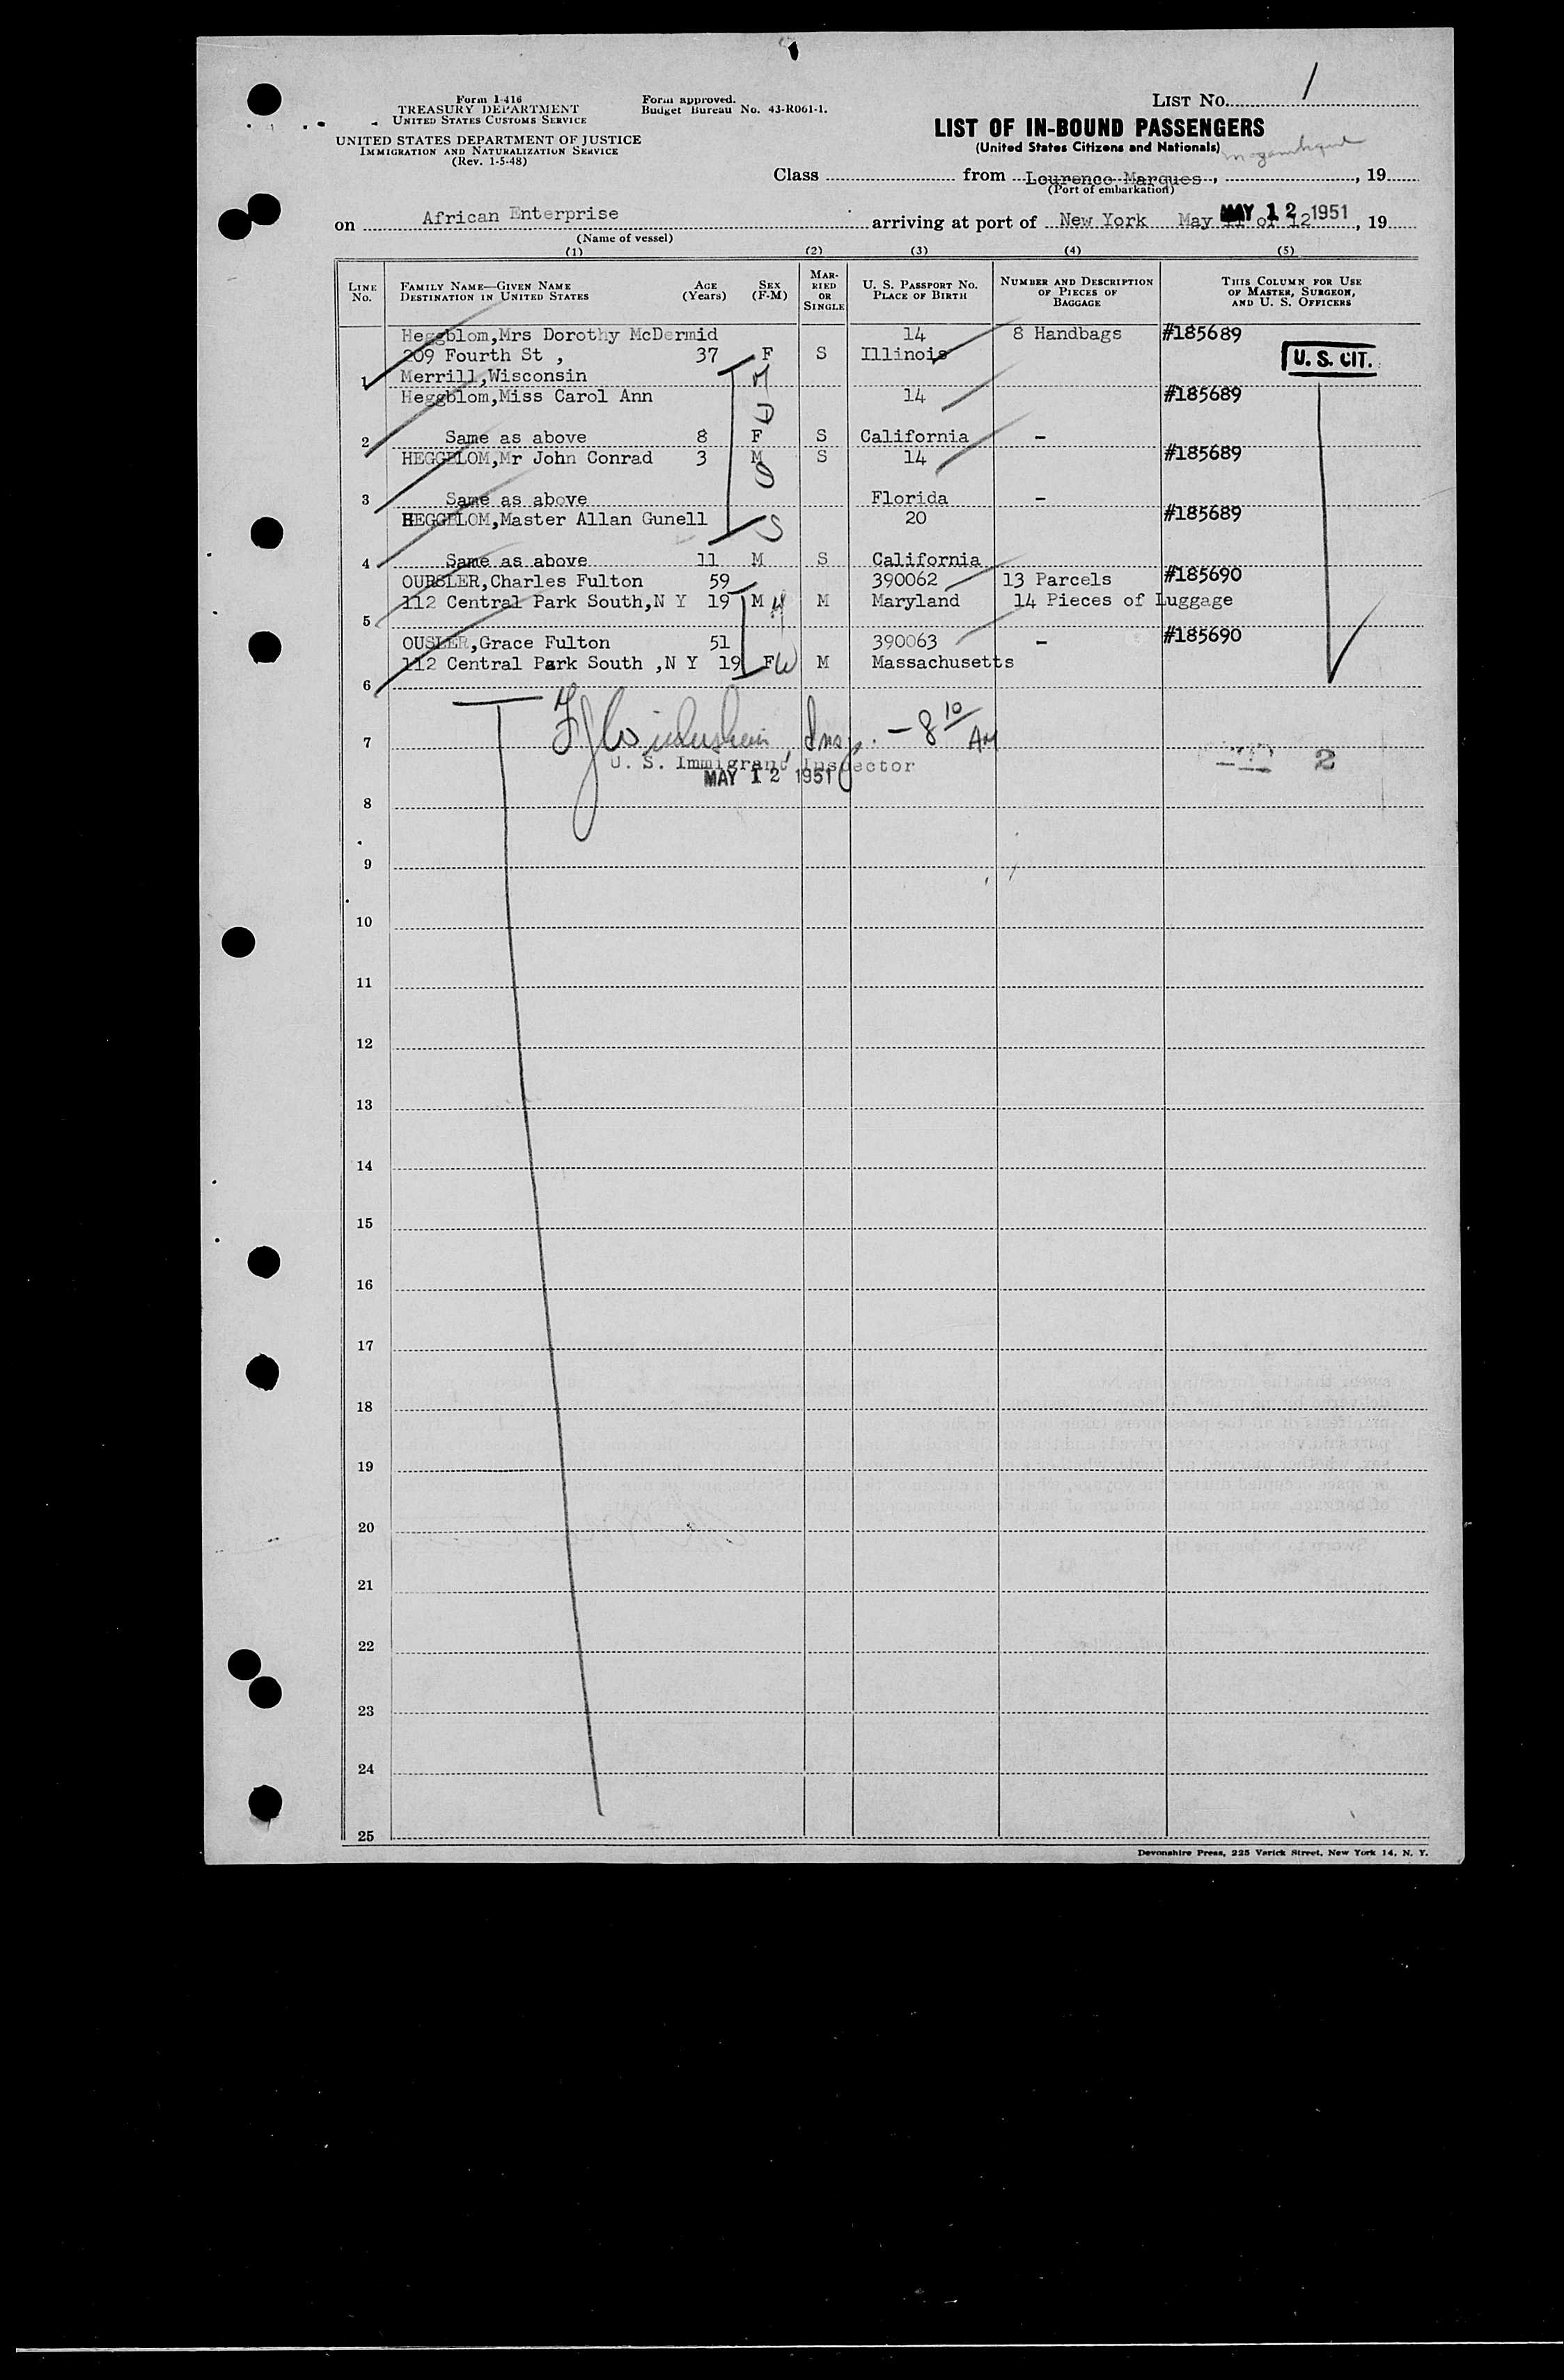 Form I-416
TREASURY DEPARTMENT
UNITED STATES CUSTOMS SERVICE
UNITED STATES DEPARTMENT OF JUSTICE
IMMIGRATION AND NATURALIZATION SERVICE
(Rev. 1-5-48)
Form approved.
Budget Bureau No. 43-R061-1.
LIST No. 1
LIST OF IN-BOUND PASSENGERS
(United States Citizens and Nationals)
Mozambique
Class from Lourenco Marques, , 19
(Port of embarkation)
on African Enterprise arriving at port of New York May 11 or 12 MAY 12 1951, 19
(Name of vessel)
(1) (2) (3) (4) (5)
LINE No. FAMILY NAME—GIVEN NAME DESTINATION IN UNITED STATES AGE (Years) SEX (F-M) MARRIED OR SINGLE U. S. PASSPORT NO. PLACE OF BIRTH NUMBER AND DESCRIPTION OF PIECES OF BAGGAGE THIS COLUMN FOR USE OF MASTER, SURGEON, AND U. S. OFFICERS
Heggblom,Mrs Dorothy McDermid 14 8 Handbags #185689
209 Fourth St , 37 F S Illinois U. S. CIT.
1 Merrill,Wisconsin M
Heggblom,Miss Carol Ann 14 #185689
D
2 Same as above 8 F S California -
HEGGBLOM,Mr John Conrad 3 M S 14 #185689
S
3 Same as above Florida -
HEGGBLOM,Master Allan Gunell 20 #185689
S
4 Same as above 11 M S California
OURSLER,Charles Fulton 59 390062 13 Parcels #185690
112 Central Park South,N Y 19 M H M Maryland 14 Pieces of Luggage
5
OUSLER,Grace Fulton 51 390063 - #185690
112 Central Park South ,N Y 19 F W M Massachusetts
6
Insp. - 8 10/AM
7
U. S. Immigrant Inspector
MAY 12 1951
2
8
9
10
11
12
13
14
15
16
17
18
19
20
21
22
23
24
25
Devonshire Press, 225 Varick Street, New York 14, N. Y.